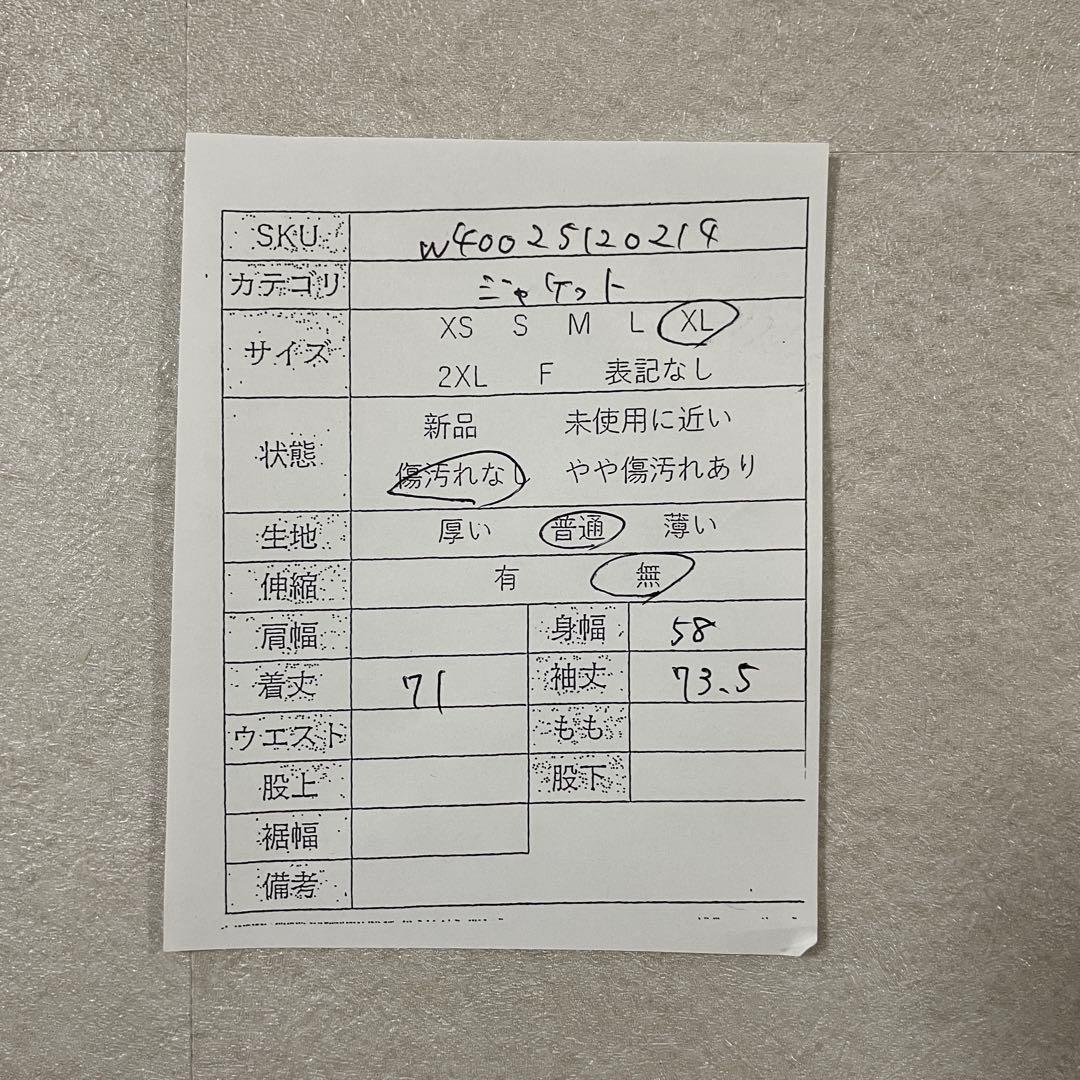 SKU w40025120214
カテゴリ ジャケット
サイズ XS S M L XL
2XL F 表記なし
状態 新品 未使用に近い
傷汚れなし やや傷汚れあり
生地 厚い 普通 薄い
伸縮 有 無
肩幅 身幅 58
着丈 71 袖丈 73.5
ウエスト もも
股上 股下
裾幅
備考